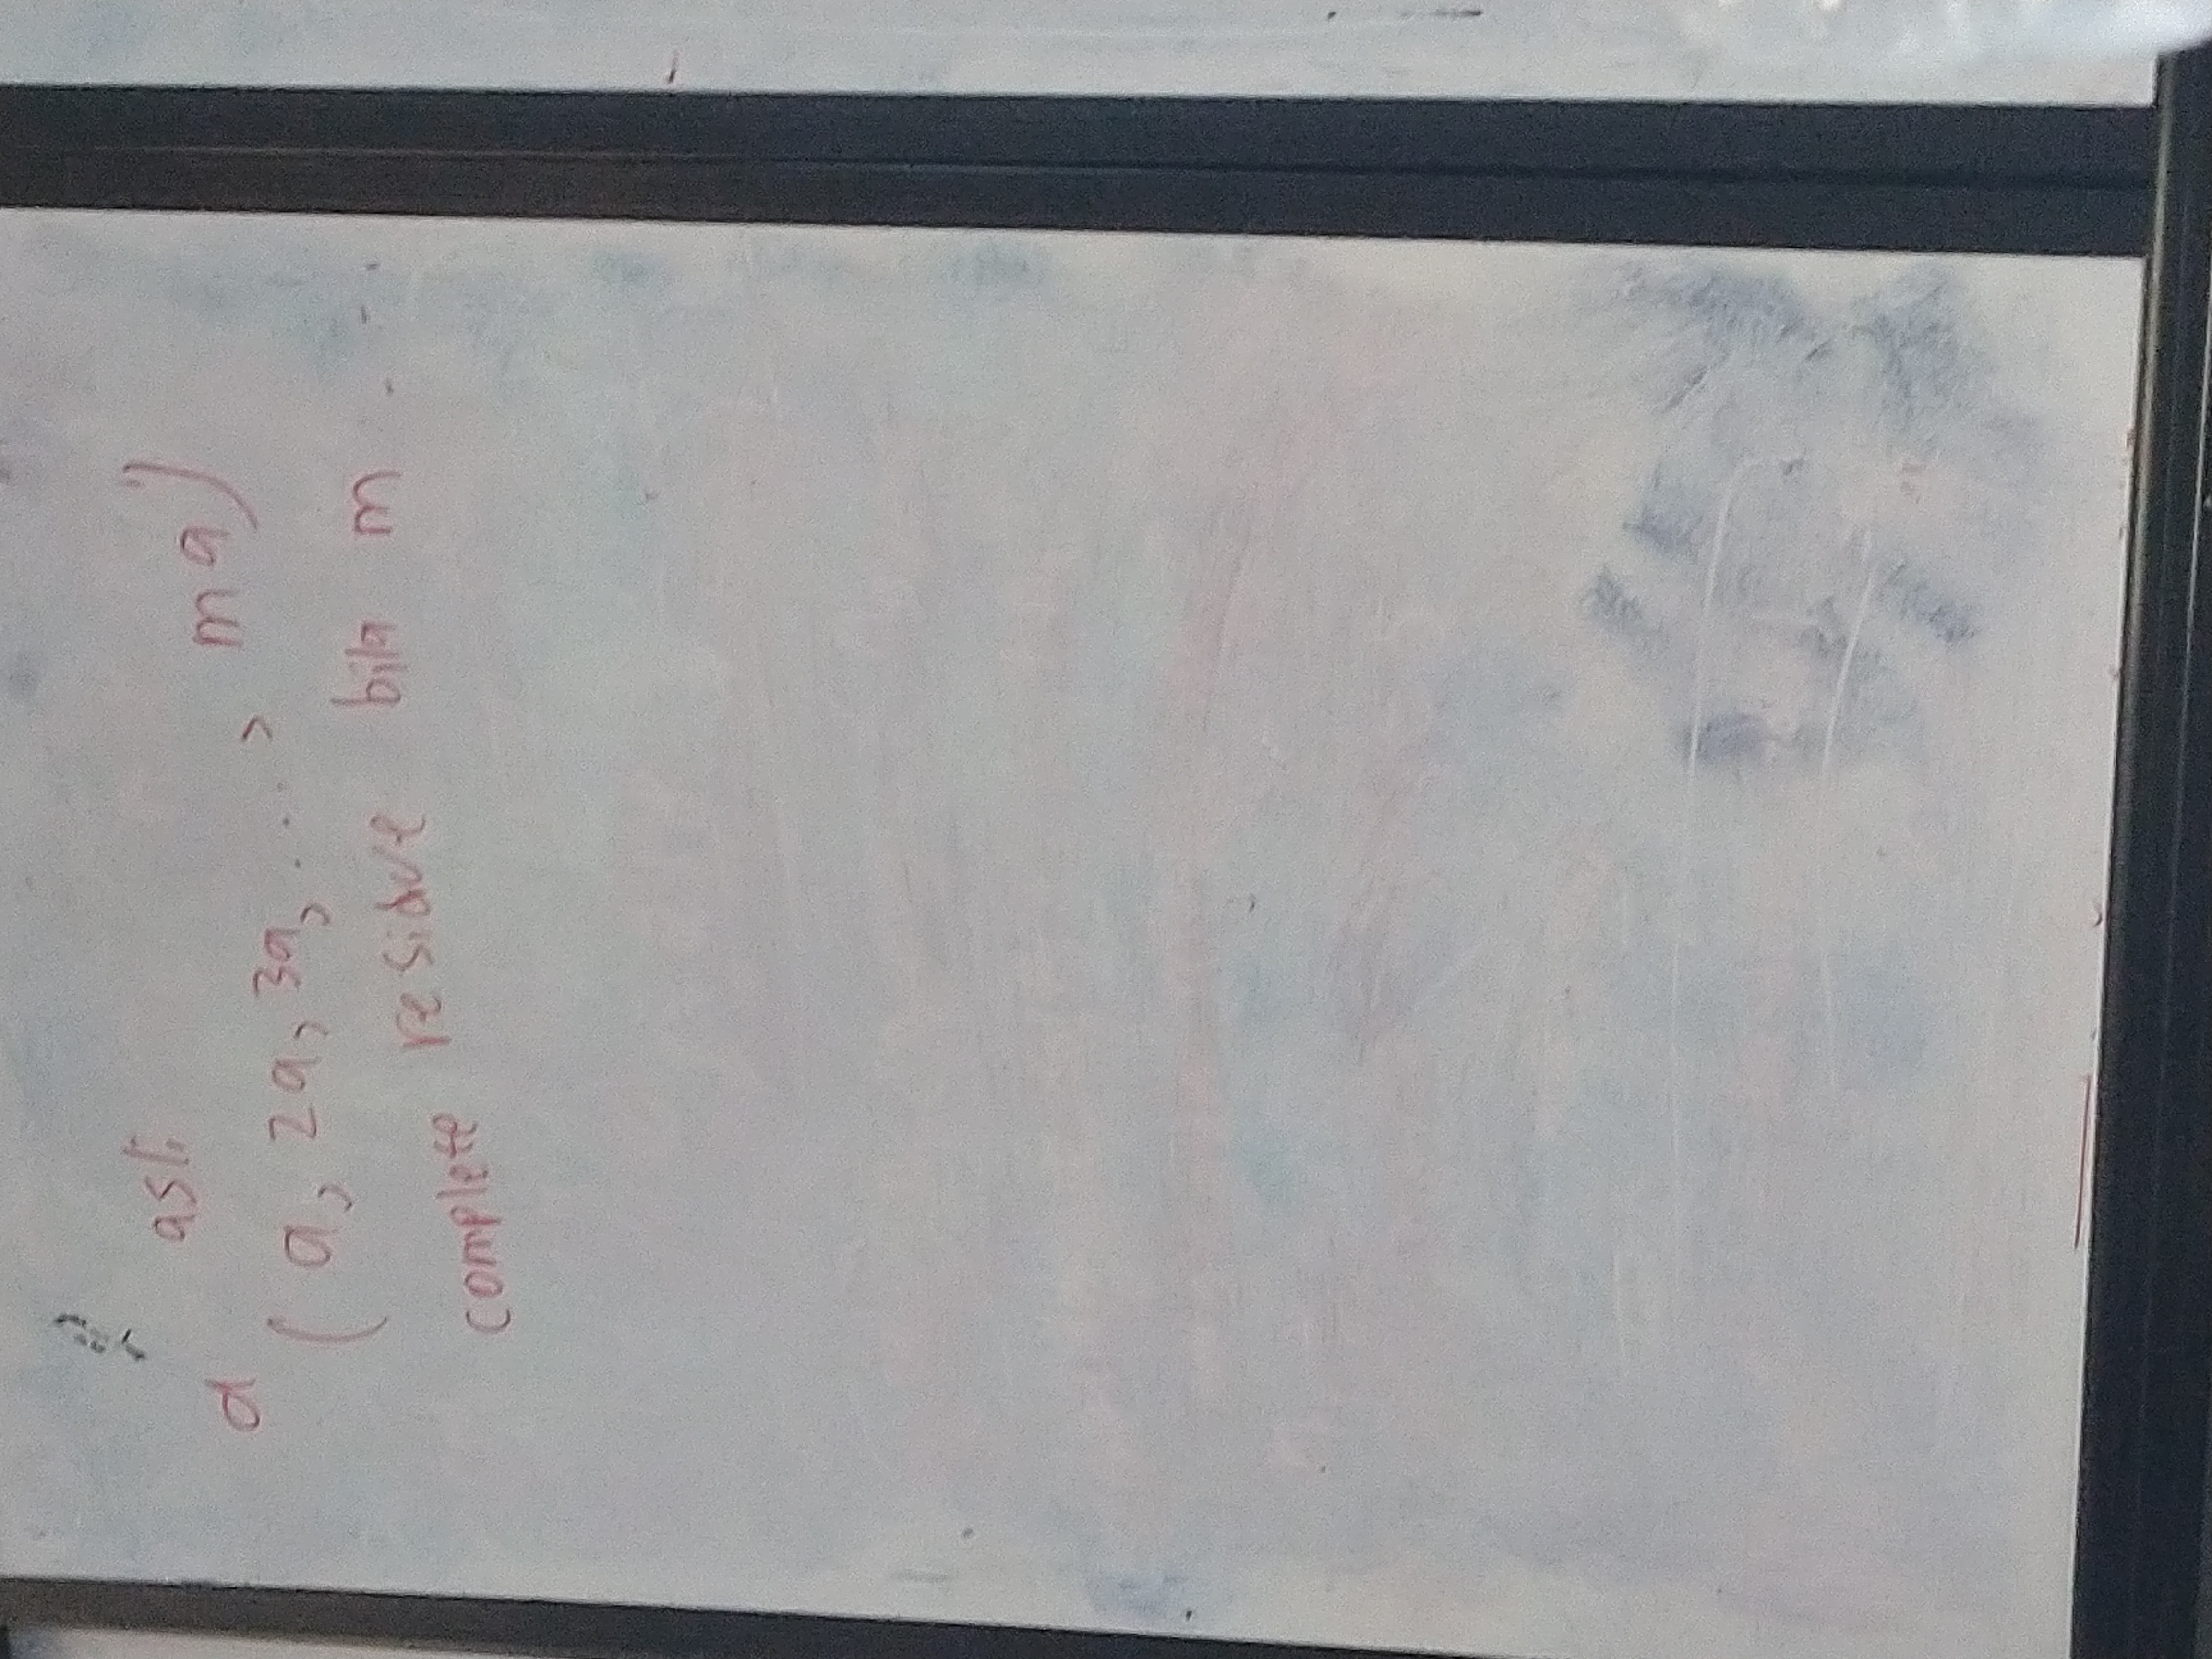 a asli
(a, 2a, 3a, ...., ma)
complete residue bila m ...